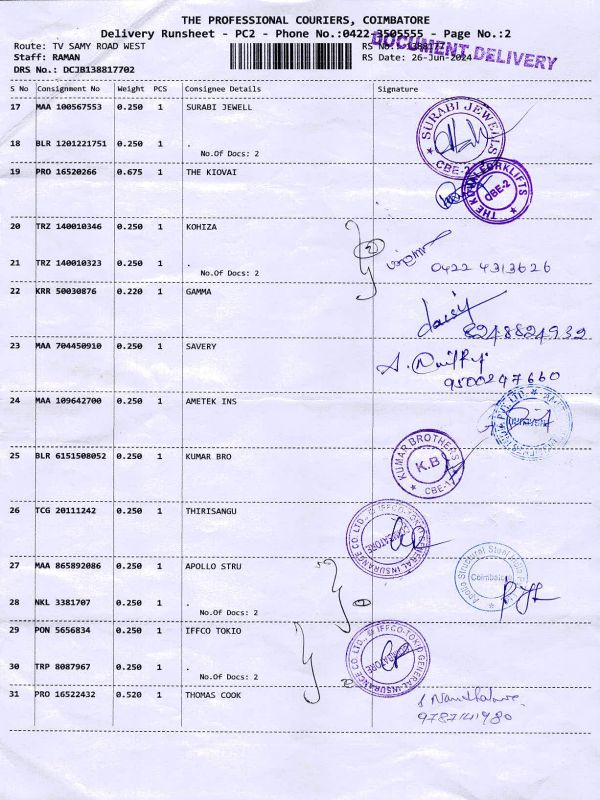 THE PROFESSIONAL COURIERS, COIMBATORE
Delivery Runsheet - PC2 - Phone No.:0422-3505555 - Page No.:2
DOCUMENT DELIVERY
Route: TV SAMY ROAD WEST RS No.: 1388177
Staff: RAMAN RS Date: 26-Jun-2024
DRS No.: DCJB138817702
S No Consignment No Weight PCS Consignee Details Signature
17 MAA 100567553 0.250 1 SURABI JEWELL
SURABI JEWELS CBE-2
18 BLR 1201221751 0.250 1 .
No.Of Docs: 2
19 PRO 16520266 0.675 1 THE KIOVAI
CBE-2
20 TRZ 140010346 0.250 1 KOHIZA
2
21 TRZ 140010323 0.250 1 .
0422 4313626
No.Of Docs: 2
22 KRR 50030876 0.220 1 GAMMA
8248824932
23 MAA 704450910 0.250 1 SAVERY
9500297660
24 MAA 109642700 0.250 1 AMETEK INS
25 BLR 6151508052 0.250 1 KUMAR BRO
KUMAR BROTHERS K.B CBE-1
26 TCG 20111242 0.250 1 THIRISANGU
IFFCO-TOKIO GENERAL INSURANCE CO. LTD. COIMBATORE
27 MAA 865892086 0.250 1 APOLLO STRU
Apollo Structural Steel Coimbatore
28 NKL 3381707 0.250 1 .
No.Of Docs: 2
29 PON 5656834 0.250 1 IFFCO TOKIO
IFFCO-TOKIO GENERAL INSURANCE CO. LTD. COIMBATORE
30 TRP 8087967 0.250 1 .
No.Of Docs: 2
31 PRO 16522432 0.520 1 THOMAS COOK
9787141980